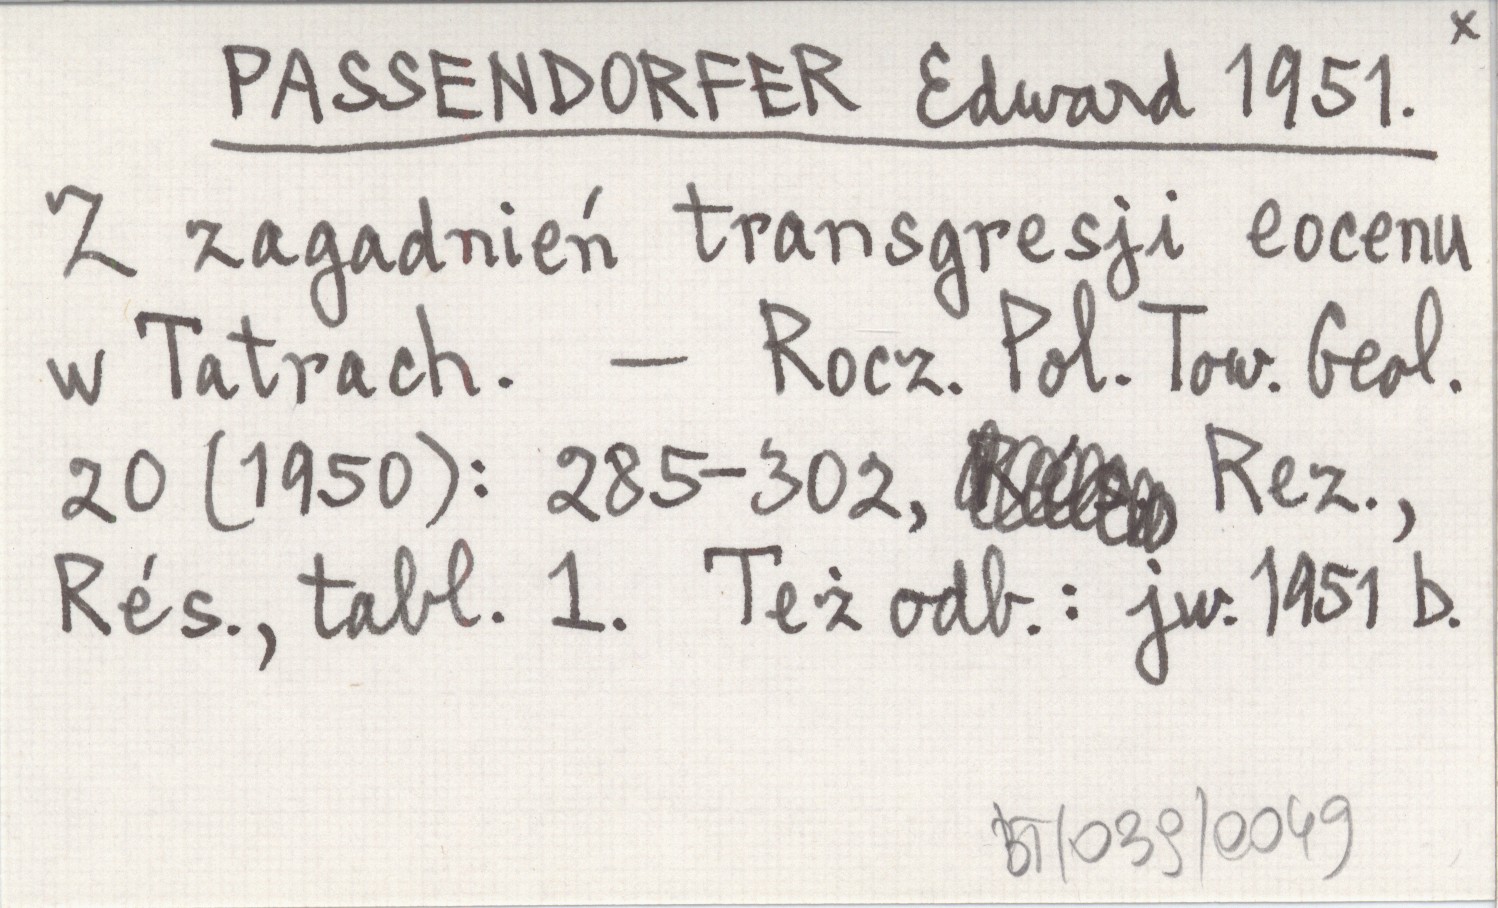 x
PASSENDORFER Edward 1951.
Z zagadnień transgresji eocenu
w Tatrach. — Rocz. Pol. Tow. Geol.
20 (1950): 285-302, Rez.,
Rés., tabl. 1. Też odb.: jw. 1951 b.
BT/039/0049